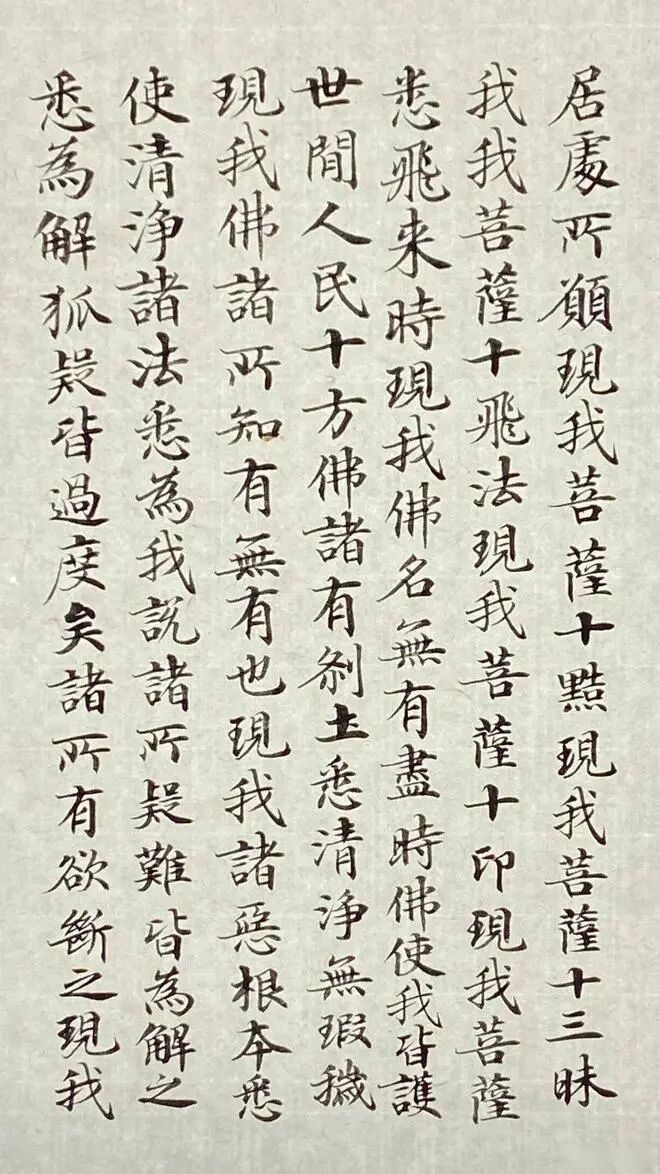 居處所願現我菩薩十黠現我菩薩十三昧
我我菩薩十飛法現我菩薩十印現我菩薩
悉飛来時現我佛名無有盡時佛使我皆護
世間人民十方佛諸有剎土悉清淨無瑕穢
現我佛諸所知有無有也現我諸惡根本悉
使清淨諸法悉為我說諸所疑難皆為解之
悉為解狐疑皆過度矣諸所有欲斷之現我